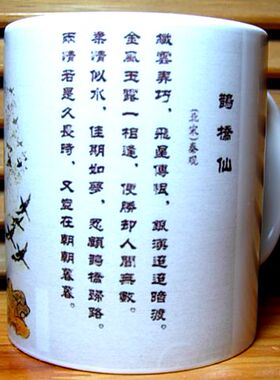 鵲橋仙
（北宋）秦观
纖雲弄巧，飛星傳恨，銀漢迢迢暗渡。
金風玉露一相逢，便勝却人間無數。
柔情似水，佳期如夢，忍顧鵲橋歸路。
兩情若是久長時，又豈在朝朝暮暮。